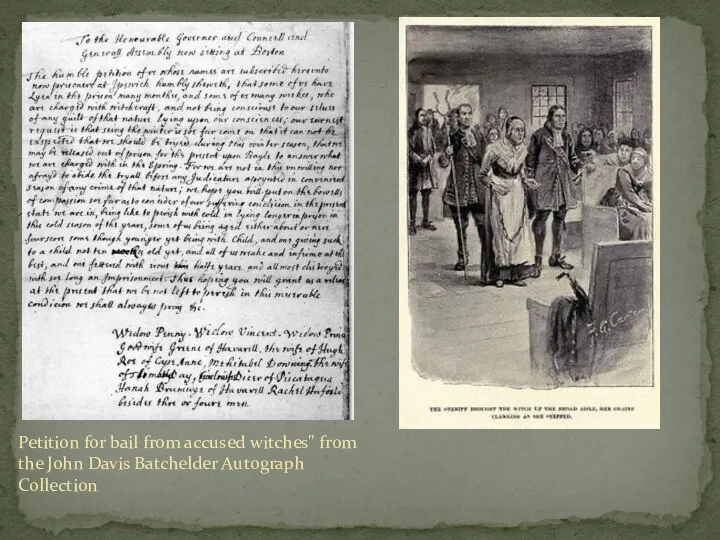 To the Honourable Governer and Councell and
Generall Assembly now sitting at Boston
The humble petition of us whose names are subscribed hereunto
now prisoners at Ipswich humbly sheweth, that some of us have
Lyen in the prison many months, and some of us many weekes, who
are charged with witchcraft, and not being conscious to our selves
of any guilt of that nature lying upon our consciences; our earnest
request is that seing the winter is soe far come on that it can not be
exspected that we should be tryed during this winter season, that we
may be released out of prison for the present upon Bayle to answer what
we are charged with in the Spring. For we are not in this unwilling nor
afrayd to abide the tryall before any Judicature apoynted in convenient
season of any crime of that nature; we hope you will put on the bowells
of compassion soe far as to concider of our suffering condicion in the present
state we are in, being like to perish with cold in lying longer in prison in
this cold season of the yeare, some of us being aged either about or nere
fourscore some though younger yet being with Child, and one giving suck
to a child not ten weekes old yet, and all of us weake and infirme at the
best, and one fettered with irons this halfe yeare and all most distroyed
with soe long an Imprisonment. Thus hoping you will grant us a releas
at the present that we be not left to perish in this miserable
condicion we shall alwayes pray &c.
Widow Penny. Widow Vincent. Widow Prince
Goodwife Greene of Havarill, the wife of Hugh
Roe of Cape Anne, Mehitabel Downing. the wife
of Day, Dicer of Piscataqua
Hanah Brumidge of Havarill Rachel Hafield
besides thre or foure men
THE SHERIFF BROUGHT THE WITCH UP THE BROAD AISLE, HER CHAINS
CLANKING AS SHE STEPPED.
Petition for bail from accused witches" from
the John Davis Batchelder Autograph
Collection